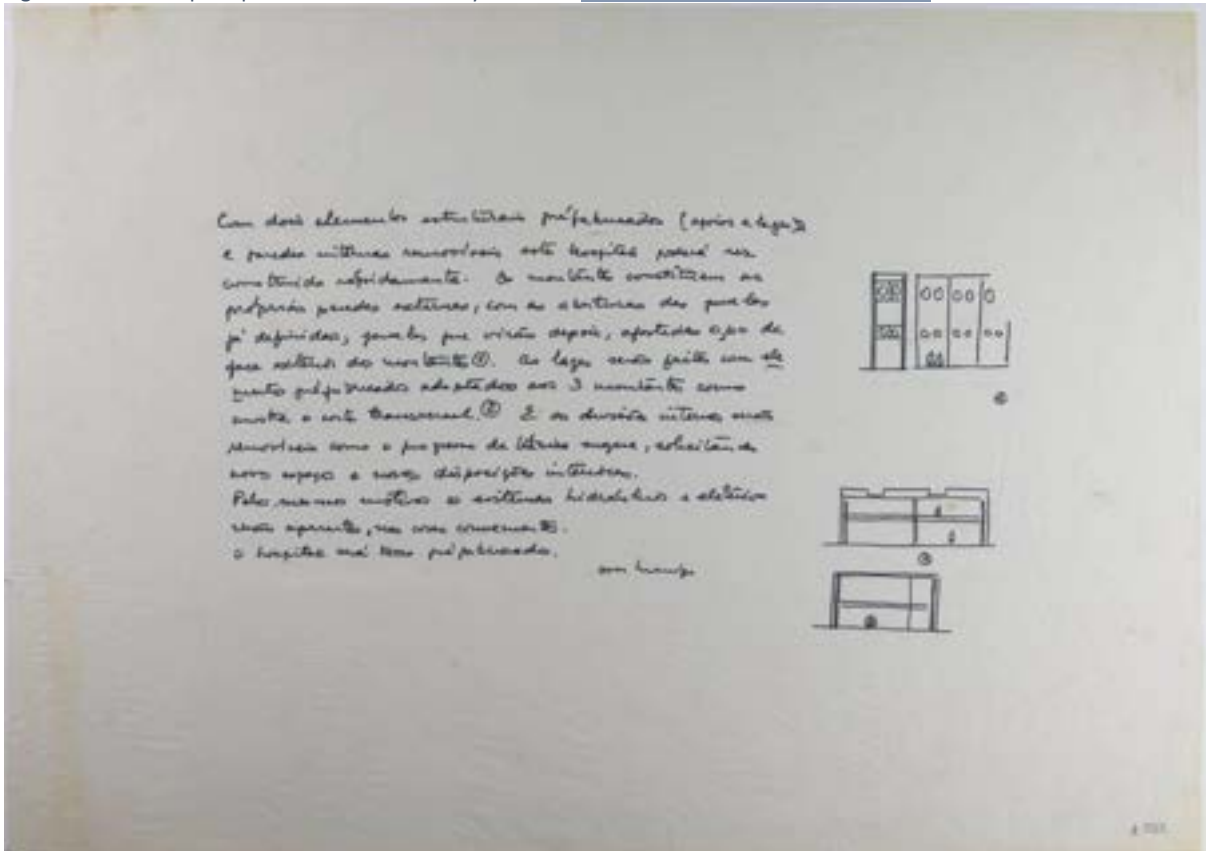 Com dois elementos estruturais préfabricados (apoios e lages)
e paredes internas removíveis este hospital poderá ser
construido rapidamente. Os montantes constituem as
próprias paredes externas, com as aberturas das janelas
já definidas, janelas que virão depois, face externa dos montantes ①. As lages serão feitas com ele
mentos préfabricados adaptados aos 3 montantes como
mostra o corte transversal. ② E as divisões internas serão
removíveis como o programa da técnica sugere, solicitando
novos espaços e novas disposições internas.
Pelos mesmos motivos os sistemas hidráulicos e elétricos
serão aparentes, nas cores convenientes.
O hospital será todo préfabricado.
①
②